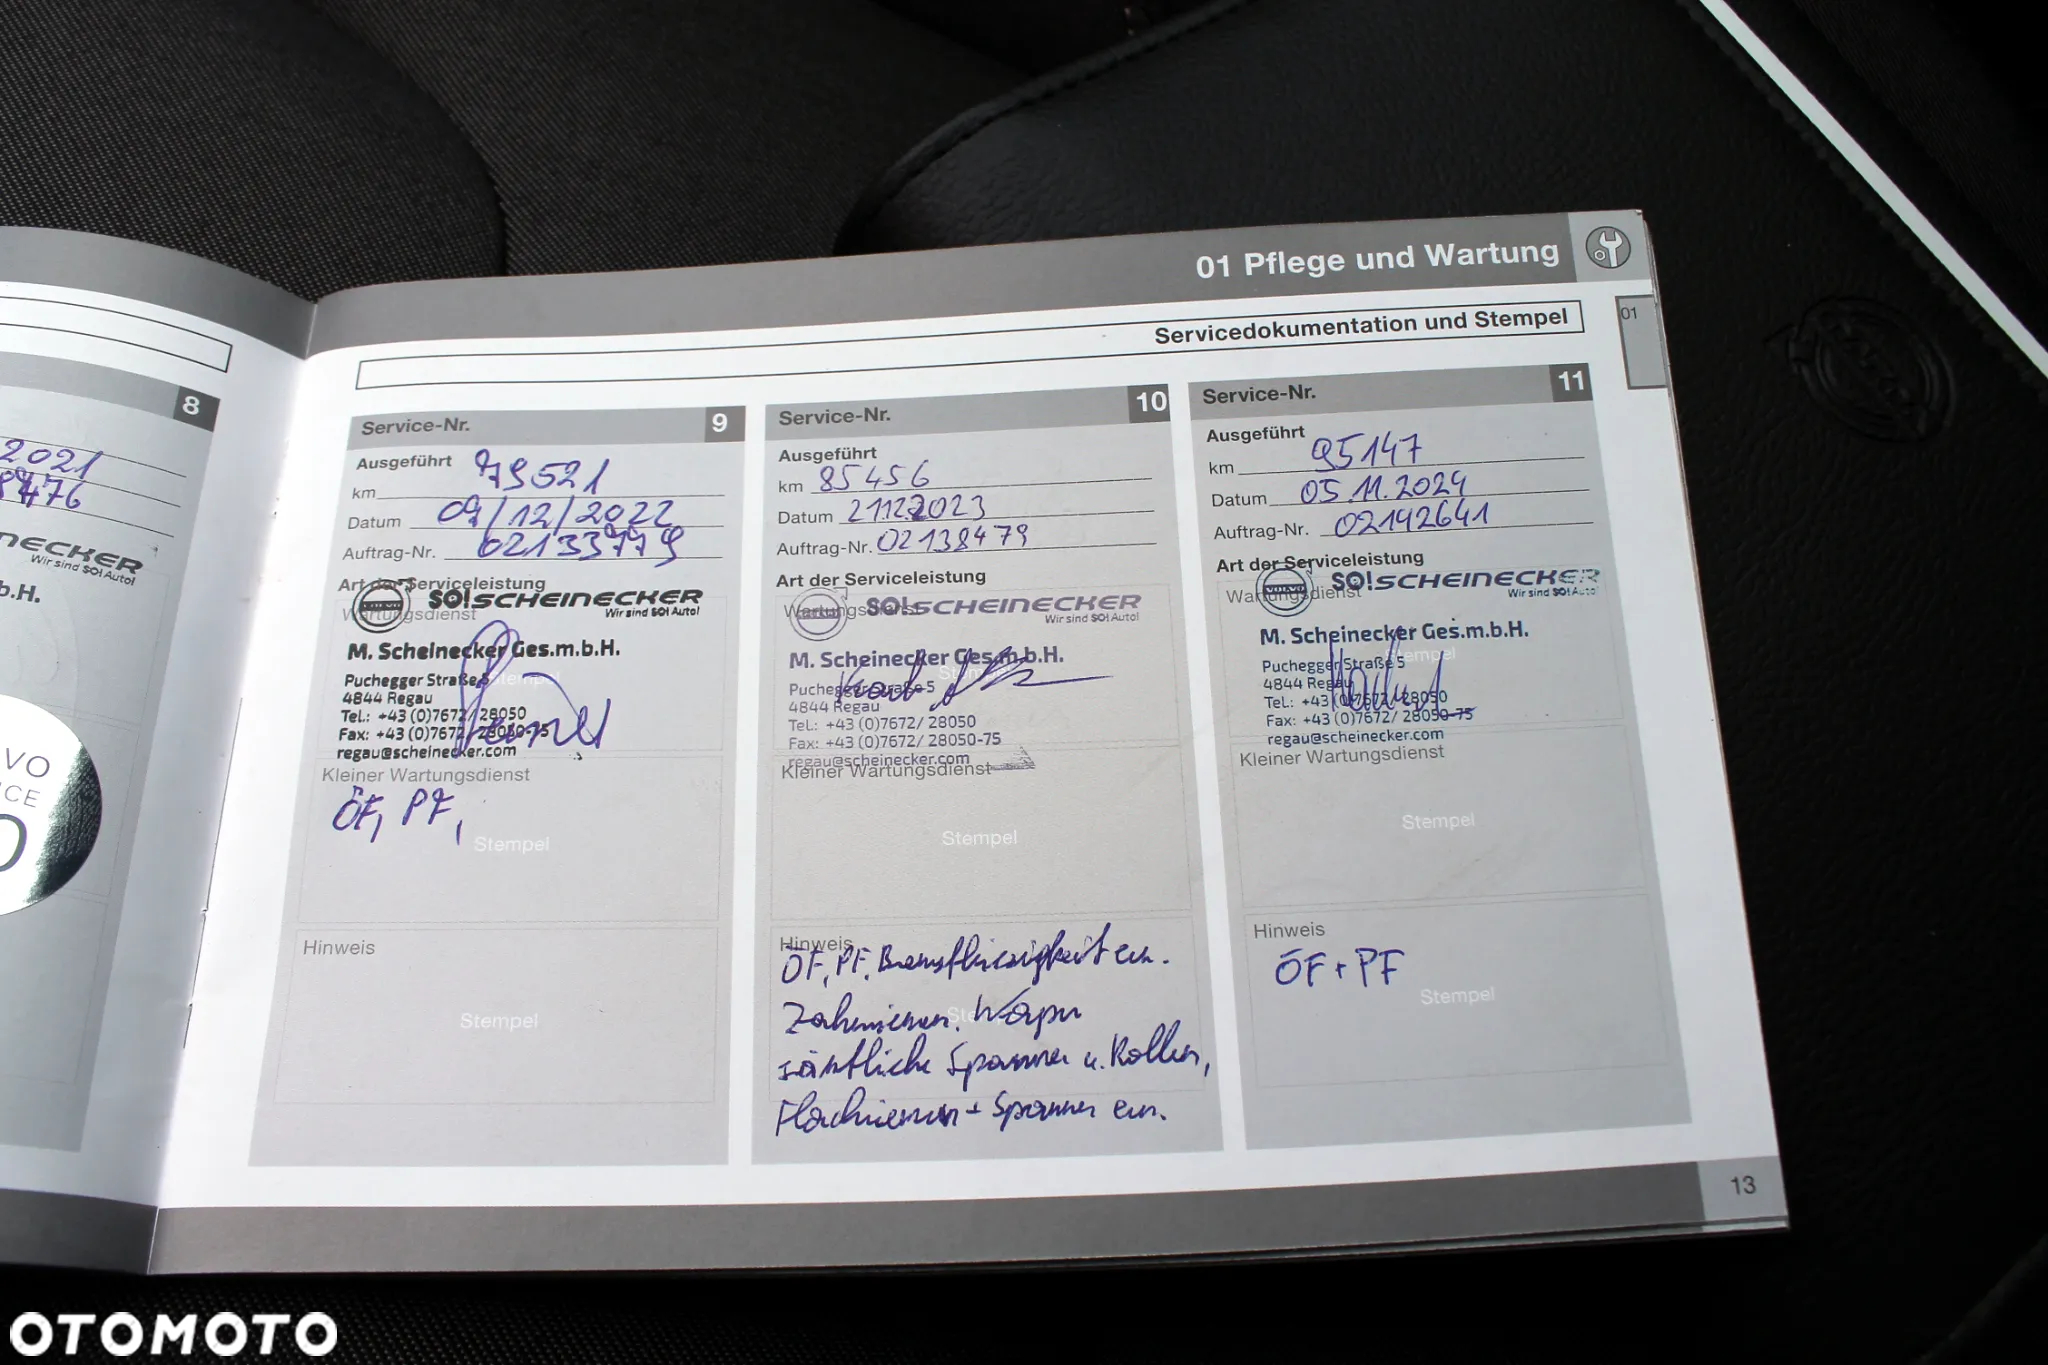 01 Pflege und Wartung
01
Servicedokumentation und Stempel
8
2021
8476
NECKER
Wir sind SO! Auto!
b.H.
VO
ICE
Service-Nr. 9
Ausgeführt
km 79521
Datum 07/12/2022
Auftrag-Nr. 02133779
Art der Serviceleistung
Wartungsdienst
SO!SCHEINECKER
Wir sind SO! Auto!
M. Scheinecker Ges.m.b.H.
Stempel
Puchegger Straße 5
4844 Regau
Tel.: +43 (0)7672/ 28050
Fax: +43 (0)7672/ 28050-75
regau@scheinecker.com
Kleiner Wartungsdienst
ÖF, PF,
Stempel
Hinweis
Stempel
Service-Nr. 10
Ausgeführt
km 85456
Datum 21.12.2023
Auftrag-Nr. 02138479
Art der Serviceleistung
Wartungsdienst
SO!SCHEINECKER
Wir sind SO! Auto!
M. Scheinecker Ges.m.b.H.
Stempel
Puchegger Straße 5
4844 Regau
Tel.: +43 (0)7672/ 28050
Fax: +43 (0)7672/ 28050-75
regau@scheinecker.com
Kleiner Wartungsdienst
Stempel
Hinweis
ÖF, PF, Bremsflüssigkeit ern.
Zahnriemen, Wapu
sämtliche Spanner u. Rollen,
Flachriemen + Spanner ern.
Service-Nr. 11
Ausgeführt
km 95147
Datum 05.11.2024
Auftrag-Nr. 02142641
Art der Serviceleistung
Wartungsdienst
VOLVO
SO!SCHEINECKER
Wir sind SO! Auto!
M. Scheinecker Ges.m.b.H.
Stempel
Puchegger Straße 5
4844 Regau
Tel.: +43 (0)7672/ 28050
Fax: +43 (0)7672/ 28050-75
regau@scheinecker.com
Kleiner Wartungsdienst
Stempel
Hinweis
ÖF + PF
Stempel
13
OTOMOTO